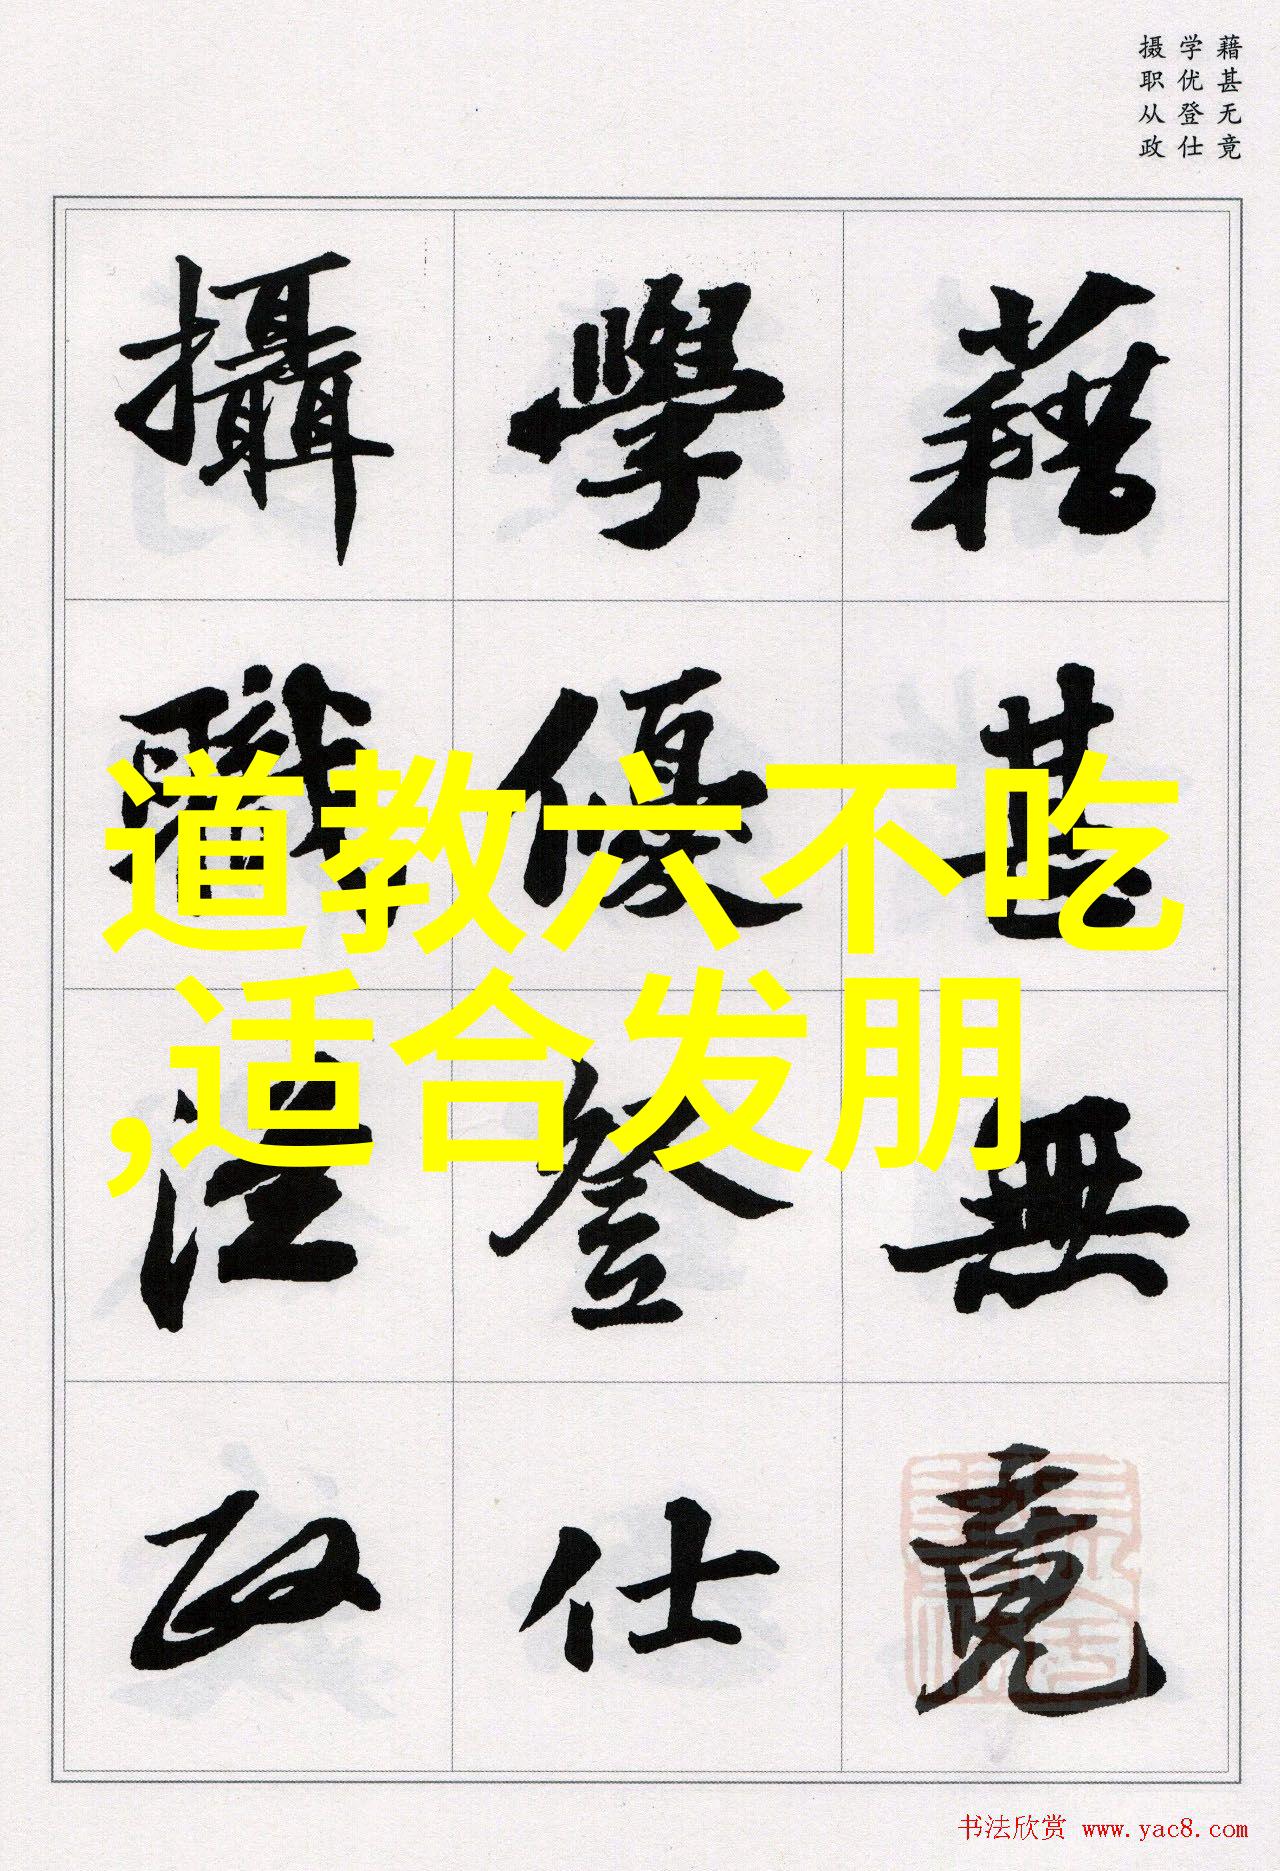 藉甚无竟
学优登仕
摄职从政
藉甚無竟
學優登仕
攝職從政
道教六不吃
,适合发朋
书法欣赏 www.yac8.com